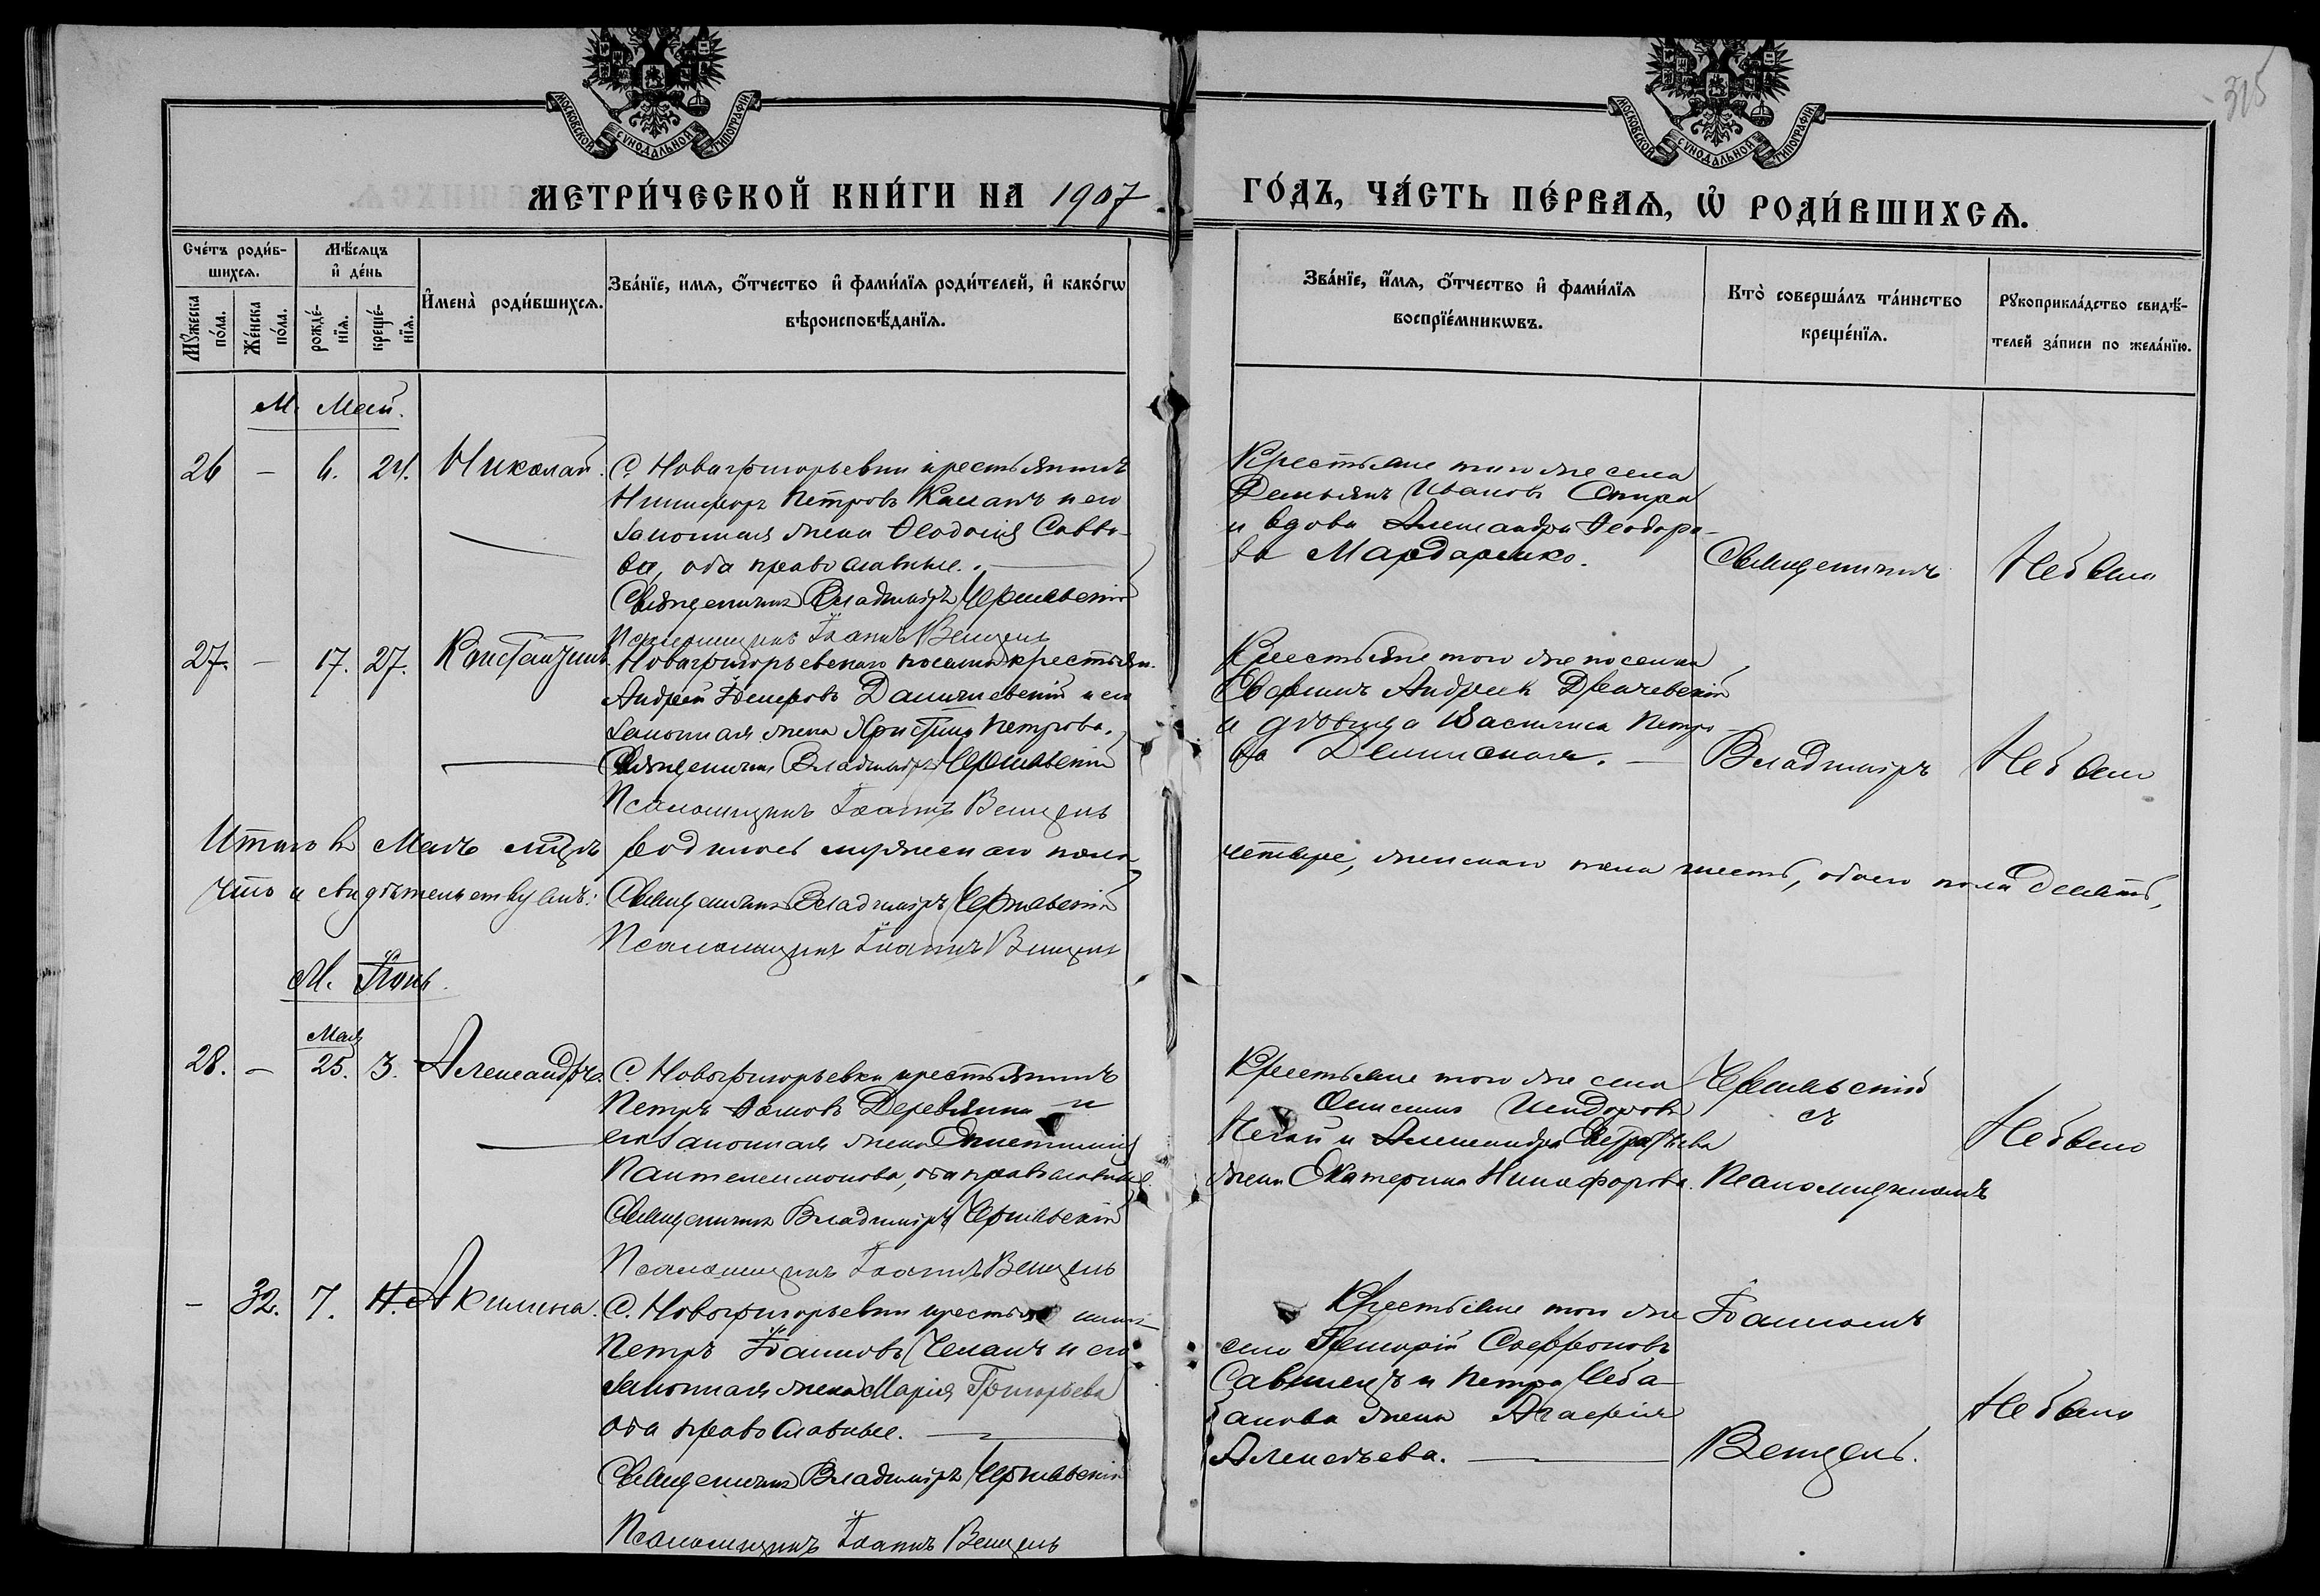 МОСКОВСКОЙ СУНОДАЛЬНОЙ ТИПОГРАФІИ
МОСКОВСКОЙ СУНОДАЛЬНОЙ ТИПОГРАФІИ
315
МЕТРИ́ЧЕСКОЙ КНИ́ГИ НА 1907 ГО́ДЪ, ЧА́СТЬ ПЕ́РВАЯ, Ѡ҆ РОДИ́ВШИХСЯ.
Сче́тъ роди́в-
шихся.
Мѣ́сяцъ
и҆ де́нь
Мꙋ́жеска
по́ла.
Же́нска
по́ла.
рожде́-
нїя.
креще́-
нїя.
И҆мена̀ роди́вшихся.
Зва́нїе, имя, ѻ҆́тчество и҆ фами́лїя роди́телей, и҆ како́гѡ
вѣроисповѣ́данїя.
Зва́нїе, и҆́мя, ѻ҆́тчество и҆ фами́лїя
воспрїе́мникѡвъ.
Кто̀ соверша́лъ та́инство
креще́нїя.
Рꙋкоприкла́дство свидѣ́-
телей за́писи по жела́нїю.
М. Май.
26 — 6. 24. Николай.
С. Новогригорьевки крестьянинъ
Никифоръ Петровъ Каланъ и его
законная жена Ѳеодосія Савво-
ва, оба православные.
Священникъ Владиміръ Чернявскій
Псаломщикъ Іоаннъ Венцель
Крестьяне того же села
Демьянъ Ивановъ
и вдова Александра Ѳеодоро-
ва Мардаренко.
Священникъ
Не было
27. — 17. 27. Константинъ.
Новогригорьевскаго поселка крестьян.
Андрей
законная жена Христина Петрова.
Священникъ Владиміръ Чернявскій
Псаломщикъ Іоаннъ Венцель
Крестьяне того же поселка
Андреевъ
и дѣвица Василиса Петро-
ва
Владиміръ
Не было
Итого въ Маѣ мцѣ родилось мужескаго пола четыре, женскаго пола шесть, обоего пола десять,
что и свидѣтельствуемъ: Священникъ Владиміръ Чернявскій
Псаломщикъ Іоаннъ Венцель
М. Іюнь.
Мая
28. — 25. 3. Александръ.
С. Новогригорьевки крестьянинъ
Петръ Ѳомовъ Деревянко и
его законная жена
Пантелеимонова, оба православные.
Священникъ Владиміръ Чернявскій
Псаломщикъ Іоаннъ Венцель
Крестьяне того же села
Исидоровъ
Нечай и
жена Екатерина Никифорова.
Чернявскій
съ
Псаломщикомъ
Не было
— 32. 7. Акилина.
С. Новогригорьевки крестьянинъ
Петръ Іоанновъ Чепанъ и его
законная жена Марія Григорьева
оба православные.
Священникъ Владиміръ Чернявскій
Псаломщикъ Іоаннъ Венцель
Крестьяне того же
села Григорій Софроновъ
и Петра Чеба-
анова жена Агафія
Алексѣева.
Іоанномъ
Венцель.
Не было